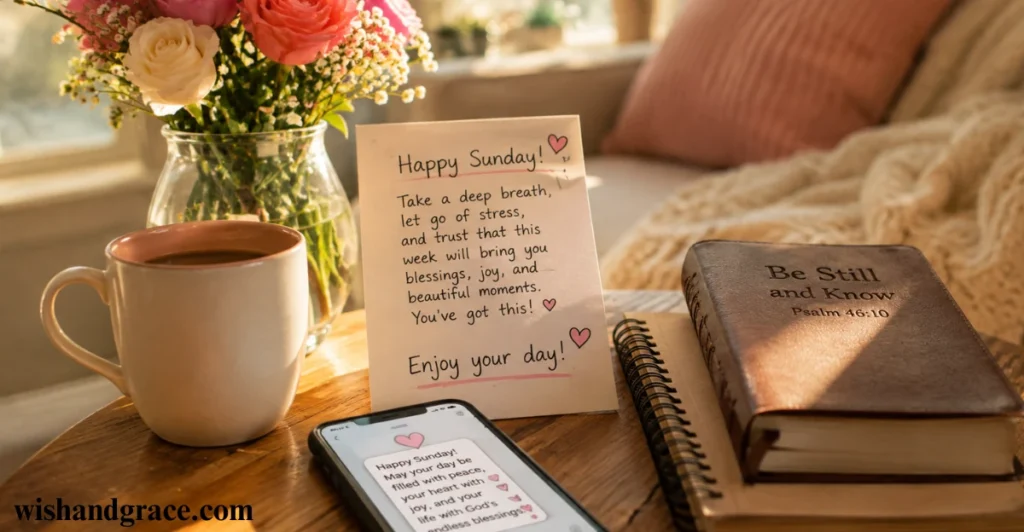 Happy Sunday!
Take a deep breath,
let go of stress,
and trust that this
week will bring you
blessings, joy, and
beautiful moments.
You've got this!
Enjoy your day!
Happy Sunday!
May your day be
filled with peace,
your heart with
joy, and your
life with God's
endless blessings
Be Still
and Know
Psalm 46:10
wishandgrace.com